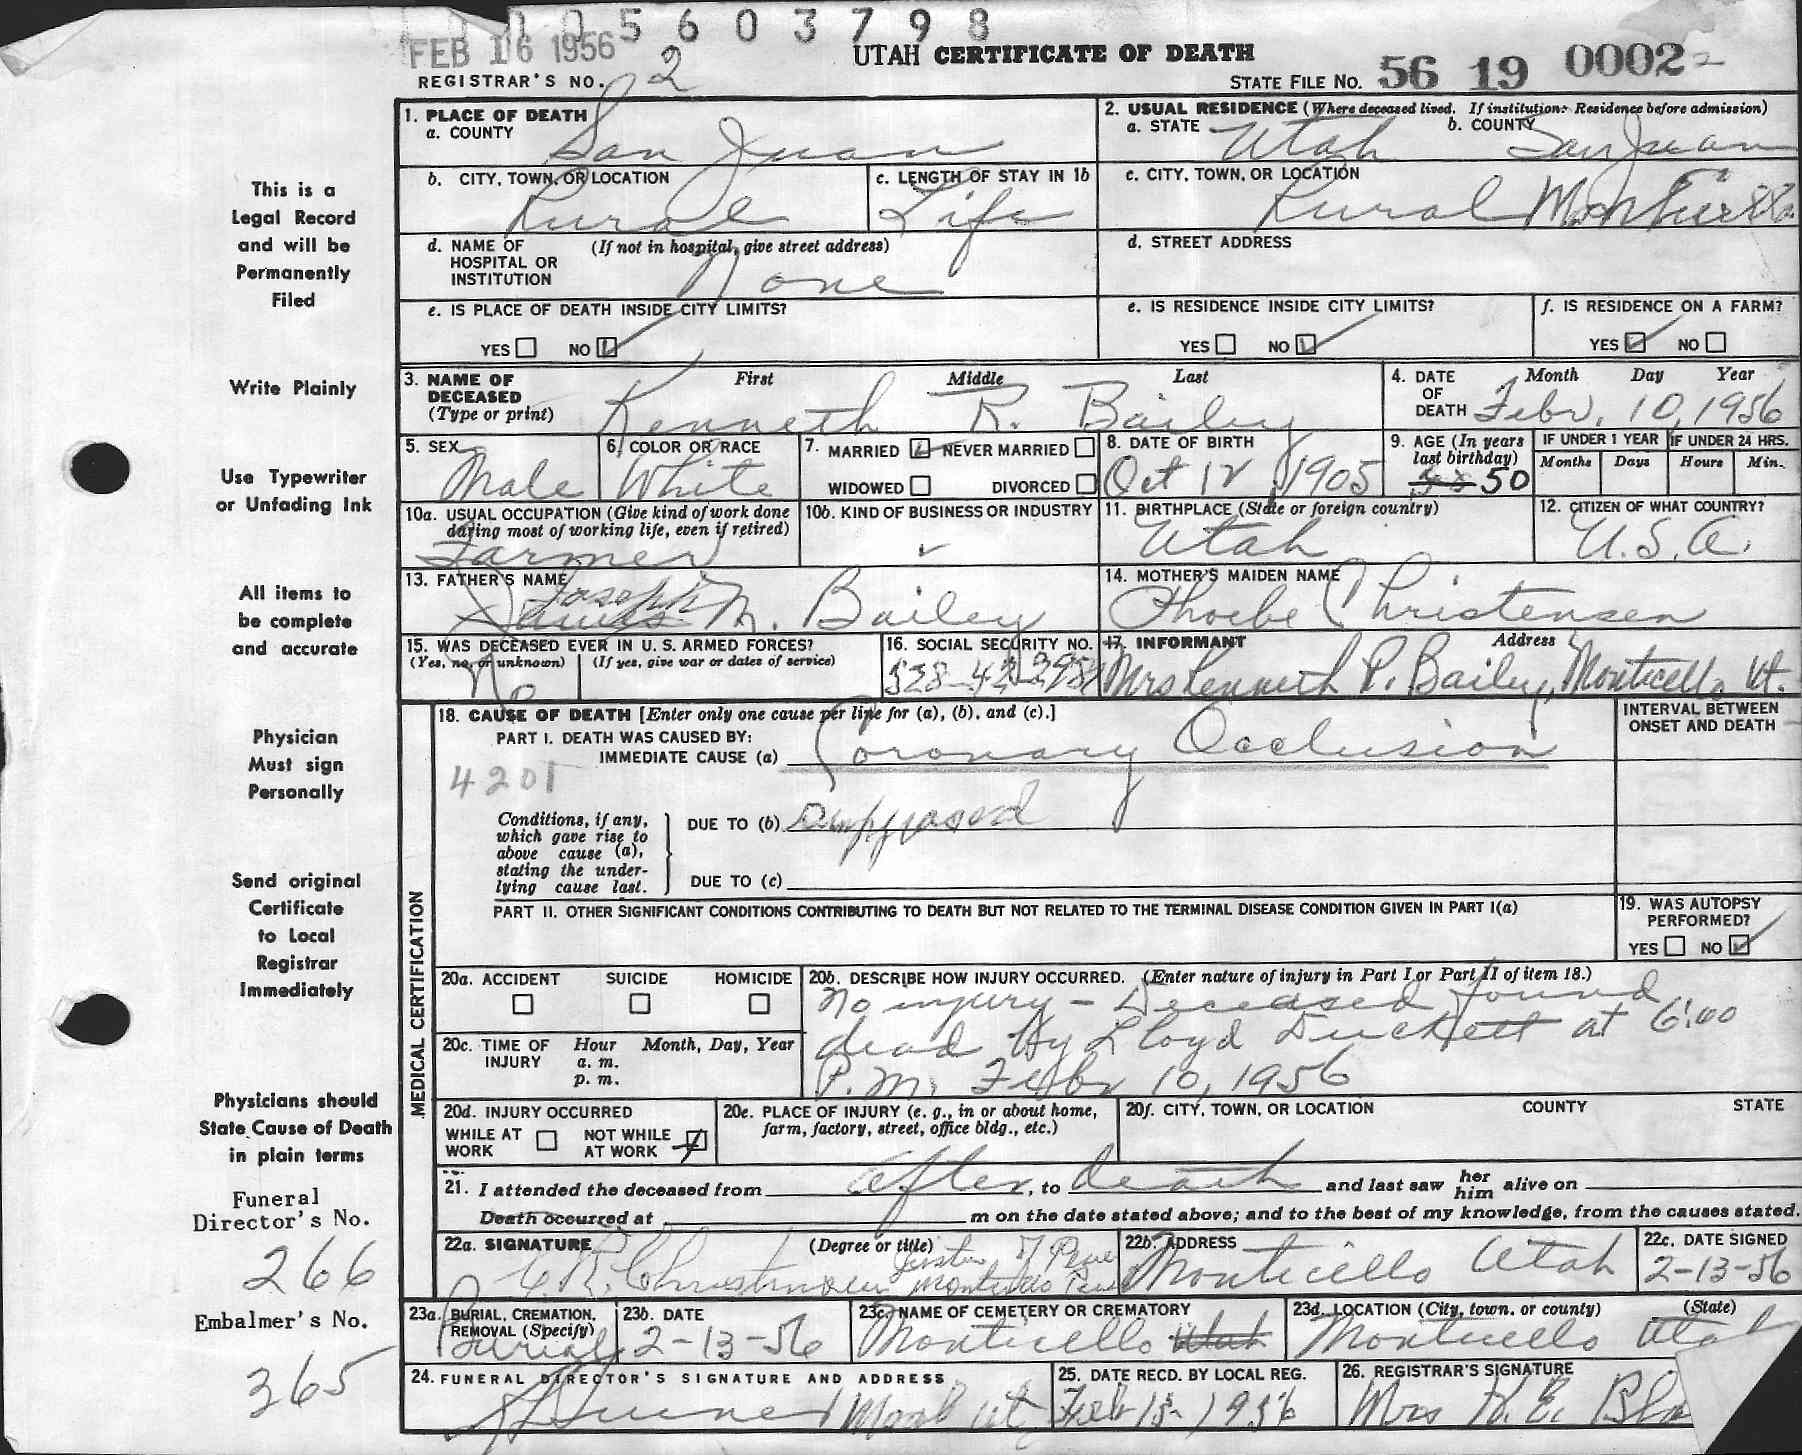 5 6 0 3 7 9 8
FEB 16 1956
UTAH CERTIFICATE OF DEATH
REGISTRAR'S NO. 2
STATE FILE NO. 56 19 0002
1. PLACE OF DEATH
a. COUNTY San Juan
2. USUAL RESIDENCE (Where deceased lived. If institution: Residence before admission)
a. STATE Utah b. COUNTY San Juan
b. CITY, TOWN, OR LOCATION Rural
c. LENGTH OF STAY IN 1b Life
c. CITY, TOWN, OR LOCATION Rural Monticello
d. NAME OF HOSPITAL OR INSTITUTION (If not in hospital, give street address) None
d. STREET ADDRESS
e. IS PLACE OF DEATH INSIDE CITY LIMITS?
YES NO
e. IS RESIDENCE INSIDE CITY LIMITS?
YES NO
f. IS RESIDENCE ON A FARM?
YES NO
3. NAME OF DECEASED (Type or print) First Middle Last
Kenneth R. Bailey
4. DATE OF DEATH Month Day Year
Febr. 10, 1956
5. SEX Male
6. COLOR OR RACE White
7. MARRIED NEVER MARRIED
WIDOWED DIVORCED
8. DATE OF BIRTH Oct 12 1905
9. AGE (In years last birthday) 50
IF UNDER 1 YEAR IF UNDER 24 HRS.
Months Days Hours Min.
10a. USUAL OCCUPATION (Give kind of work done during most of working life, even if retired)
Farmer
10b. KIND OF BUSINESS OR INDUSTRY
11. BIRTHPLACE (State or foreign country) Utah
12. CITIZEN OF WHAT COUNTRY? U.S.A.
13. FATHER'S NAME Joseph M. Bailey
14. MOTHER'S MAIDEN NAME Phoebe Christensen
15. WAS DECEASED EVER IN U. S. ARMED FORCES?
(Yes, no, or unknown) (If yes, give war or dates of service)
No
16. SOCIAL SECURITY NO.
17. INFORMANT Address
Mrs Kenneth R. Bailey, Monticello, Ut.
18. CAUSE OF DEATH [Enter only one cause per line for (a), (b), and (c).]
INTERVAL BETWEEN ONSET AND DEATH
PART I. DEATH WAS CAUSED BY:
IMMEDIATE CAUSE (a) Coronary Occlusion
4201
Conditions, if any, which gave rise to above cause (a), stating the underlying cause last.
DUE TO (b) Supposed
DUE TO (c)
PART II. OTHER SIGNIFICANT CONDITIONS CONTRIBUTING TO DEATH BUT NOT RELATED TO THE TERMINAL DISEASE CONDITION GIVEN IN PART I(a)
19. WAS AUTOPSY PERFORMED?
YES NO
MEDICAL CERTIFICATION
20a. ACCIDENT SUICIDE HOMICIDE
20b. DESCRIBE HOW INJURY OCCURRED. (Enter nature of injury in Part I or Part II of item 18.)
No injury - Deceased found
dead by Lloyd Duckett at 6:00
P.M. Febr 10, 1956
20c. TIME OF INJURY Hour a. m. p. m. Month, Day, Year
20d. INJURY OCCURRED
WHILE AT WORK NOT WHILE AT WORK
20e. PLACE OF INJURY (e. g., in or about home, farm, factory, street, office bldg., etc.)
20f. CITY, TOWN, OR LOCATION COUNTY STATE
21. I attended the deceased from after, to death and last saw her him alive on
Death occurred at m on the date stated above; and to the best of my knowledge, from the causes stated.
22a. SIGNATURE (Degree or title)
Christensen Justice of Peace
Monticello
22b. ADDRESS Monticello Utah
22c. DATE SIGNED 2-13-56
23a. BURIAL, CREMATION, REMOVAL (Specify) Burial
23b. DATE 2-13-56
23c. NAME OF CEMETERY OR CREMATORY Monticello Utah
23d. LOCATION (City, town, or county) (State) Monticello Utah
24. FUNERAL DIRECTOR'S SIGNATURE AND ADDRESS
Moab Ut
25. DATE RECD. BY LOCAL REG. Feb 15-1956
26. REGISTRAR'S SIGNATURE Mrs H. E.
This is a
Legal Record
and will be
Permanently
Filed
Write Plainly
Use Typewriter
or Unfading Ink
All items to
be complete
and accurate
Physician
Must sign
Personally
Send original
Certificate
to Local
Registrar
Immediately
Physicians should
State Cause of Death
in plain terms
Funeral
Director's No.
266
Embalmer's No.
365